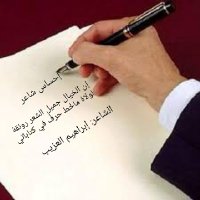 إحساس شاعر
إن الخيال جميل الشعر رونقة
لولاة ماخط حرف في كتاباتي
الشاعر: إبراهيم العزيب